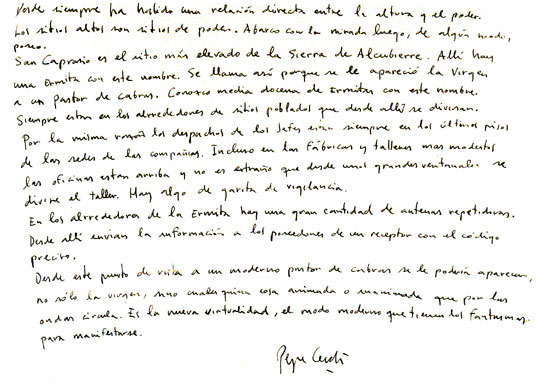 Desde siempre ha habido una relación directa entre la altura y el poder.
Los sitios altos son sitios de poder. Abarco con la mirada luego, de algún modo,
poseo.
San Caprasio es el sitio más elevado de la Sierra de Alcubierre. Allí hay
una Ermita con este nombre. Se llama así porque se le apareció la Virgen
a un Pastor de cabras. Conozco media docena de Ermitas con este nombre.
Siempre estan en los alrededores de sitios poblados que desde allí se divisan.
Por la misma razón los despachos de los Jefes están siempre en los últimos pisos
de las sedes de las compañías. Incluso en las Fábricas y talleres mas modestos
las oficinas estan arriba y no es extraño que desde unos grandes ventanales se
divise el taller. Hay algo de garita de vigilancia.
En los alrrededores de la Ermita hay una gran cantidad de antenas repetidoras.
Desde allí envian la información a los poseedores de un receptor con el código
preciso.
Desde este punto de vista a un moderno pastor de cabras se le podría aparecer,
no sólo la virgen, sino cualesquiera cosa animada o inanimada que por las
ondas circula. Es la nueva virtualidad, el modo moderno que tienen los fantasmas
para manifestarse.
Pepe Cerdá